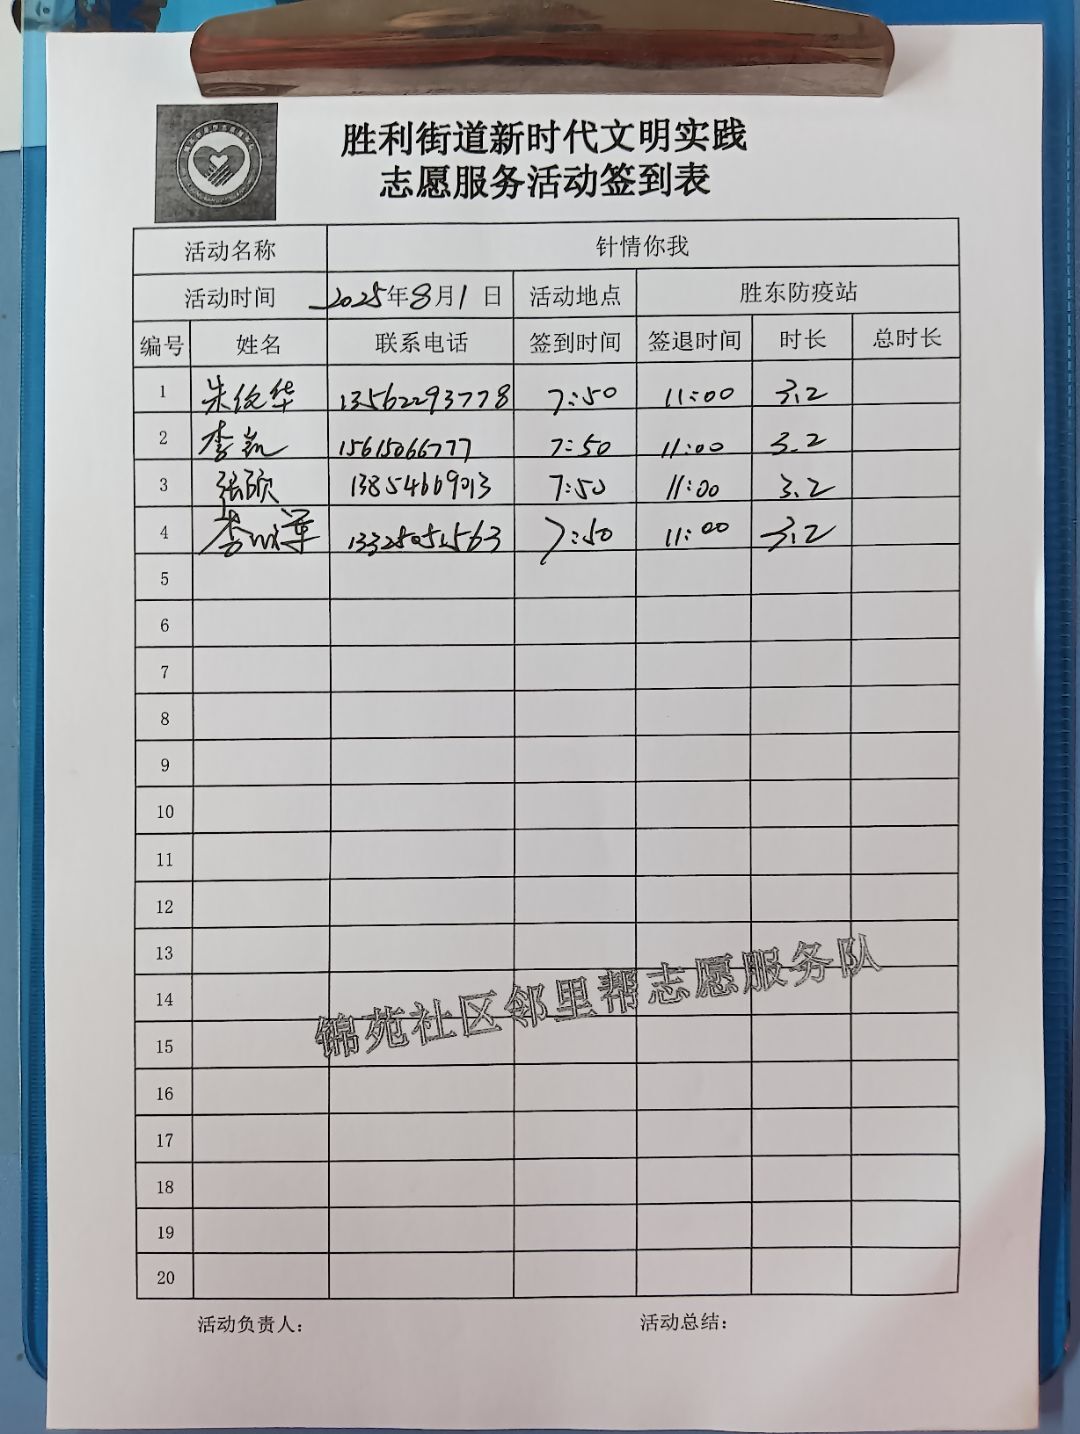 胜利街道新时代文明实践
志愿服务活动签到表
活动名称 针情你我
活动时间 2025年8月1日 活动地点 胜东防疫站
编号 姓名 联系电话 签到时间 签退时间 时长 总时长
1 朱 华 13562293778 7:50 11:00 3.2
2 李凯 15615066777 7:50 11:00 3.2
3 张硕 13854669013 7:50 11:00 3.2
4 李 7:50 11:00 3.2
5
6
7
8
9
10
11
12
13
14
15
16
17
18
19
20
锦苑社区邻里帮志愿服务队
活动负责人: 活动总结: